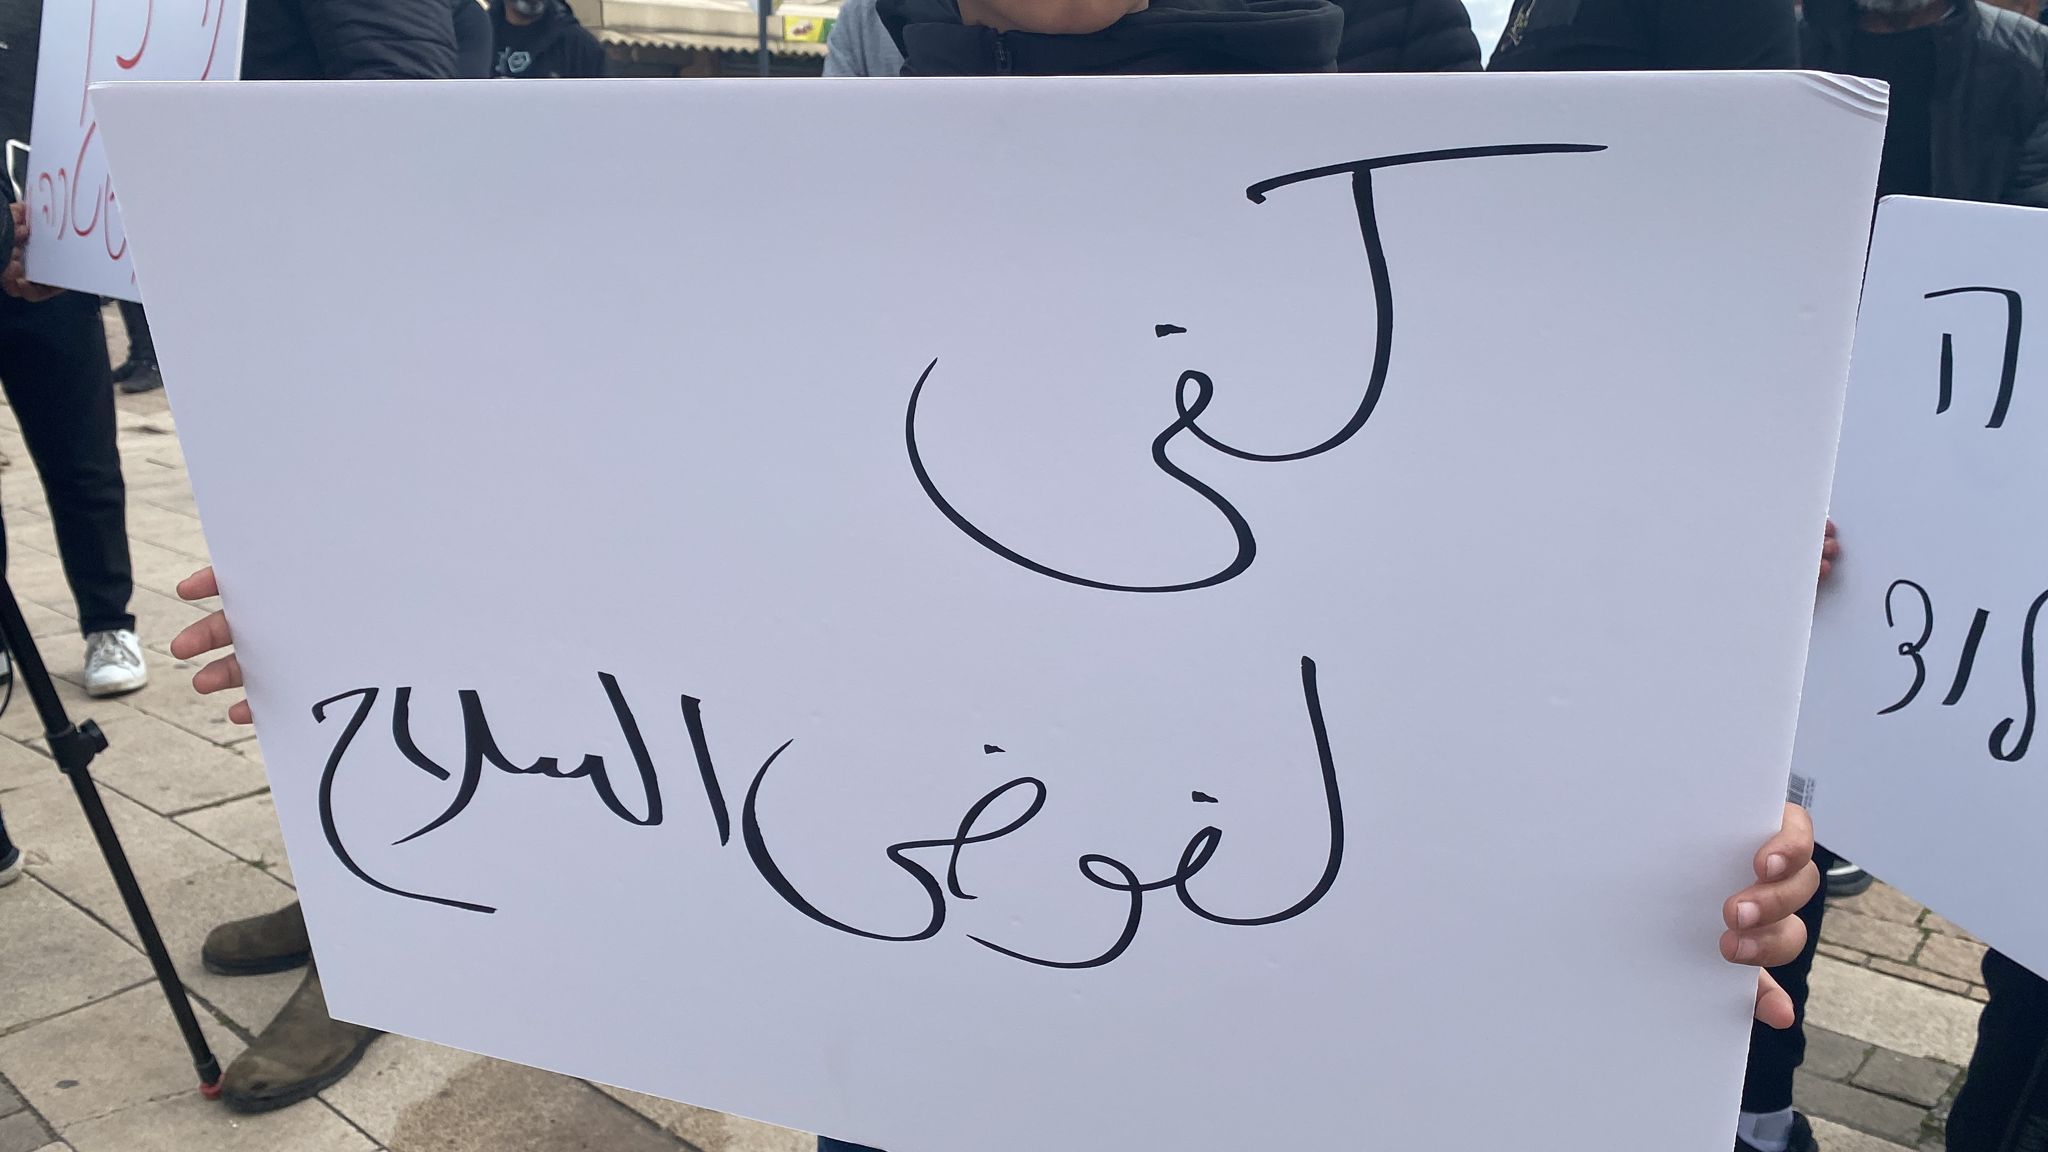 كفى
لفوضى السلاح